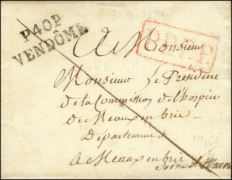 P40P
VENDÔME
A Monsieur
Monsieur le Président
de la Commission de l'hospice
de Meaux en brie
Département
A Meaux en brie